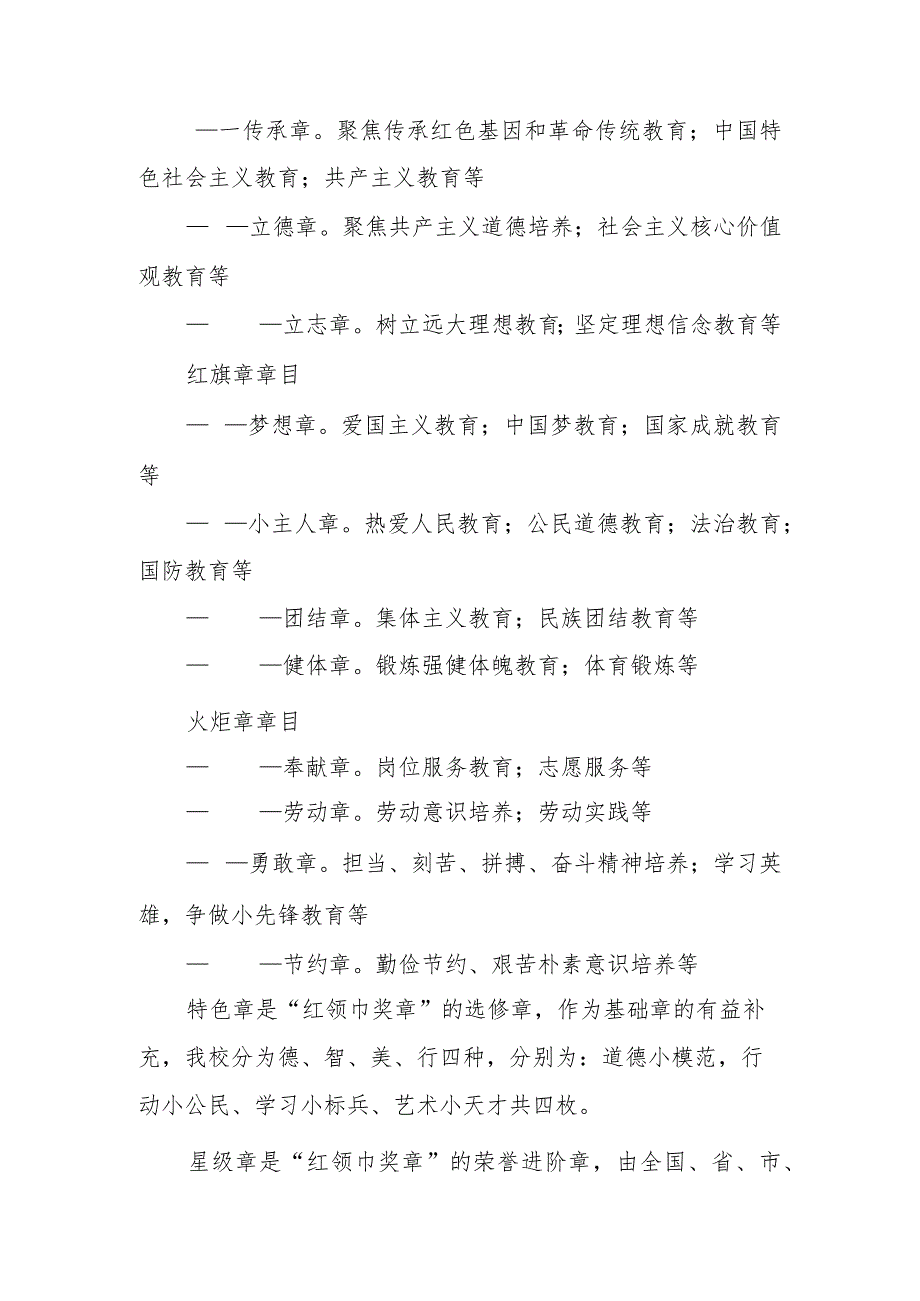 —一传承章。聚焦传承红色基因和革命传统教育；中国特
色社会主义教育；共产主义教育等
— —立德章。聚焦共产主义道德培养；社会主义核心价值
观教育等
— —立志章。树立远大理想教育；坚定理想信念教育等
红旗章章目
— —梦想章。爱国主义教育；中国梦教育；国家成就教育
等
— —小主人章。热爱人民教育；公民道德教育；法治教育；
国防教育等
— —团结章。集体主义教育；民族团结教育等
— —健体章。锻炼强健体魄教育；体育锻炼等
火炬章章目
— —奉献章。岗位服务教育；志愿服务等
— —劳动章。劳动意识培养；劳动实践等
— —勇敢章。担当、刻苦、拼搏、奋斗精神培养；学习英
雄，争做小先锋教育等
— —节约章。勤俭节约、艰苦朴素意识培养等
特色章是“红领巾奖章”的选修章，作为基础章的有益补
充，我校分为德、智、美、行四种，分别为：道德小模范，行
动小公民、学习小标兵、艺术小天才共四枚。
星级章是“红领巾奖章”的荣誉进阶章，由全国、省、市、